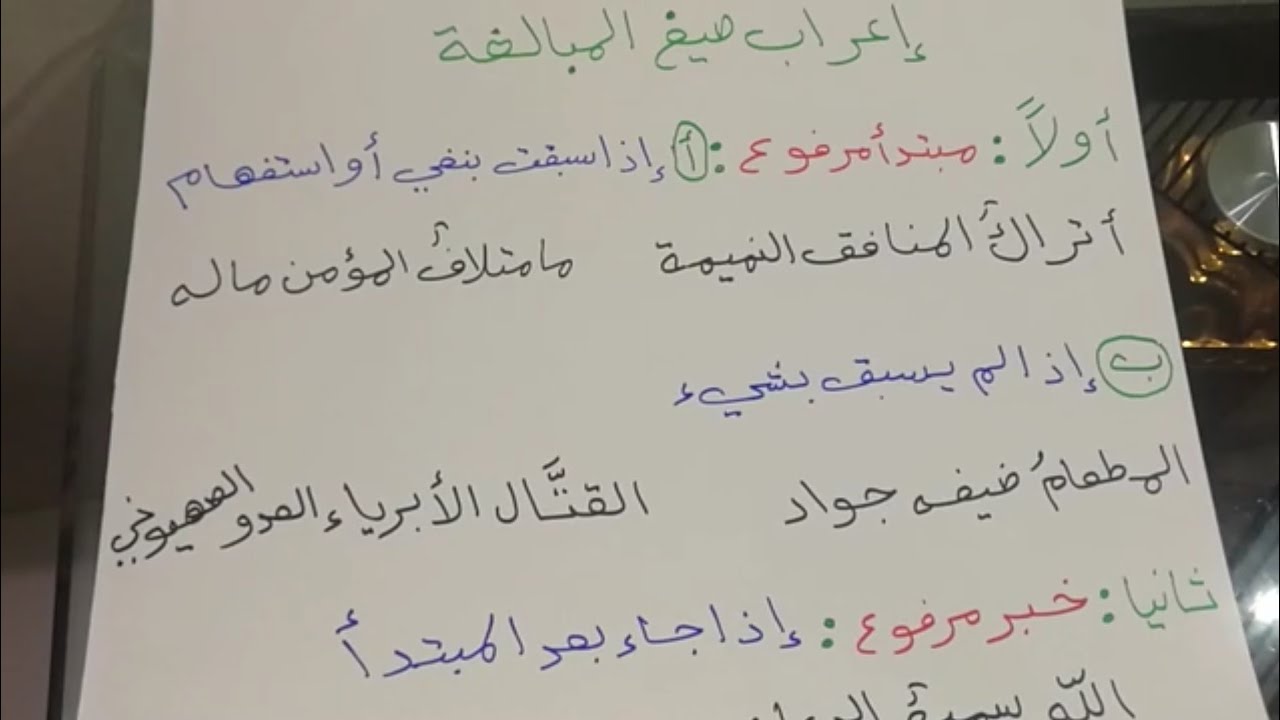 إعراب صيغ المبالغة
أولاً : مبتدأ مرفوع : أ إذا سبقت بنفي أو استفهام
أتراكٌ المنافق النميمة مامتلافٌ المؤمن ماله
ب إذا لم يسبق بشيء
المطعامُ ضيفه جواد القتَّال الأبرياء العدو الصهيوني
ثانيا : خبر مرفوع : إذا جاء بعد المبتدأ
اللّه سميعٌ